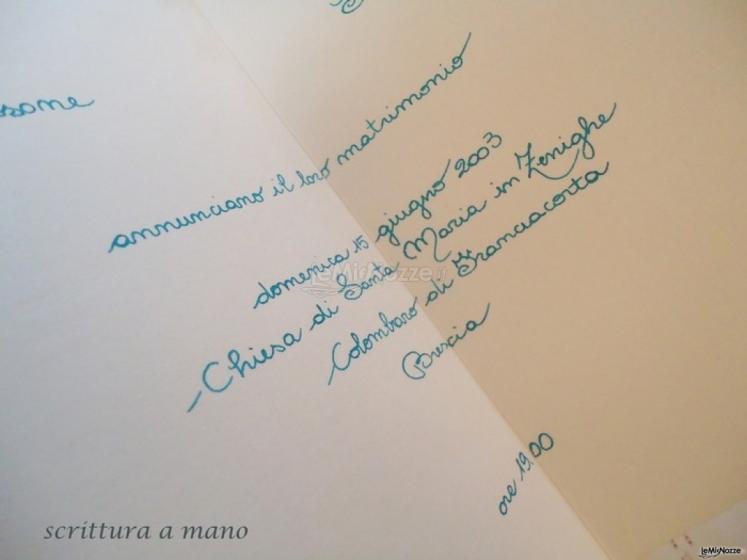 annunciano il loro matrimonio
domenica 15 giugno 2003
Chiesa di Santa Maria in Zenighe
Colombaro di Franciacorta
Brescia
ore 19.00
scrittura a mano
leMieNozze.it
leMieNozze